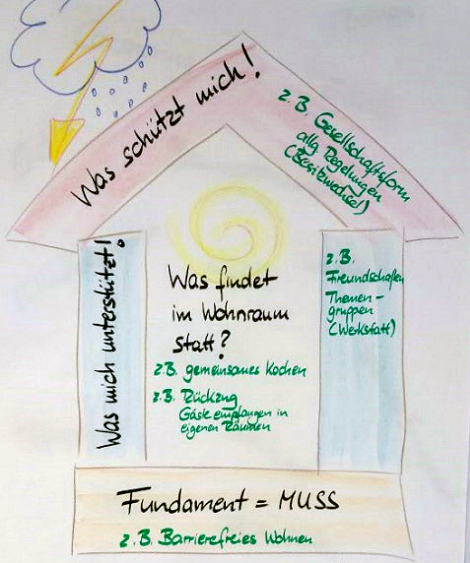 Was schützt mich!
z.B. Gesellschaftsform
allg Regelungen
(Besitzwechsel)
Was mich unterstützt!
Was findet
im Wohnraum
statt?
z.B. gemeinsames Kochen
z.B. Rückzug
Gäste empfangen in
eigenen Räumen
z.B.
Freundschaften
Themen-
gruppen
(Werkstatt)
Fundament = MUSS
z.B. Barrierefreies Wohnen